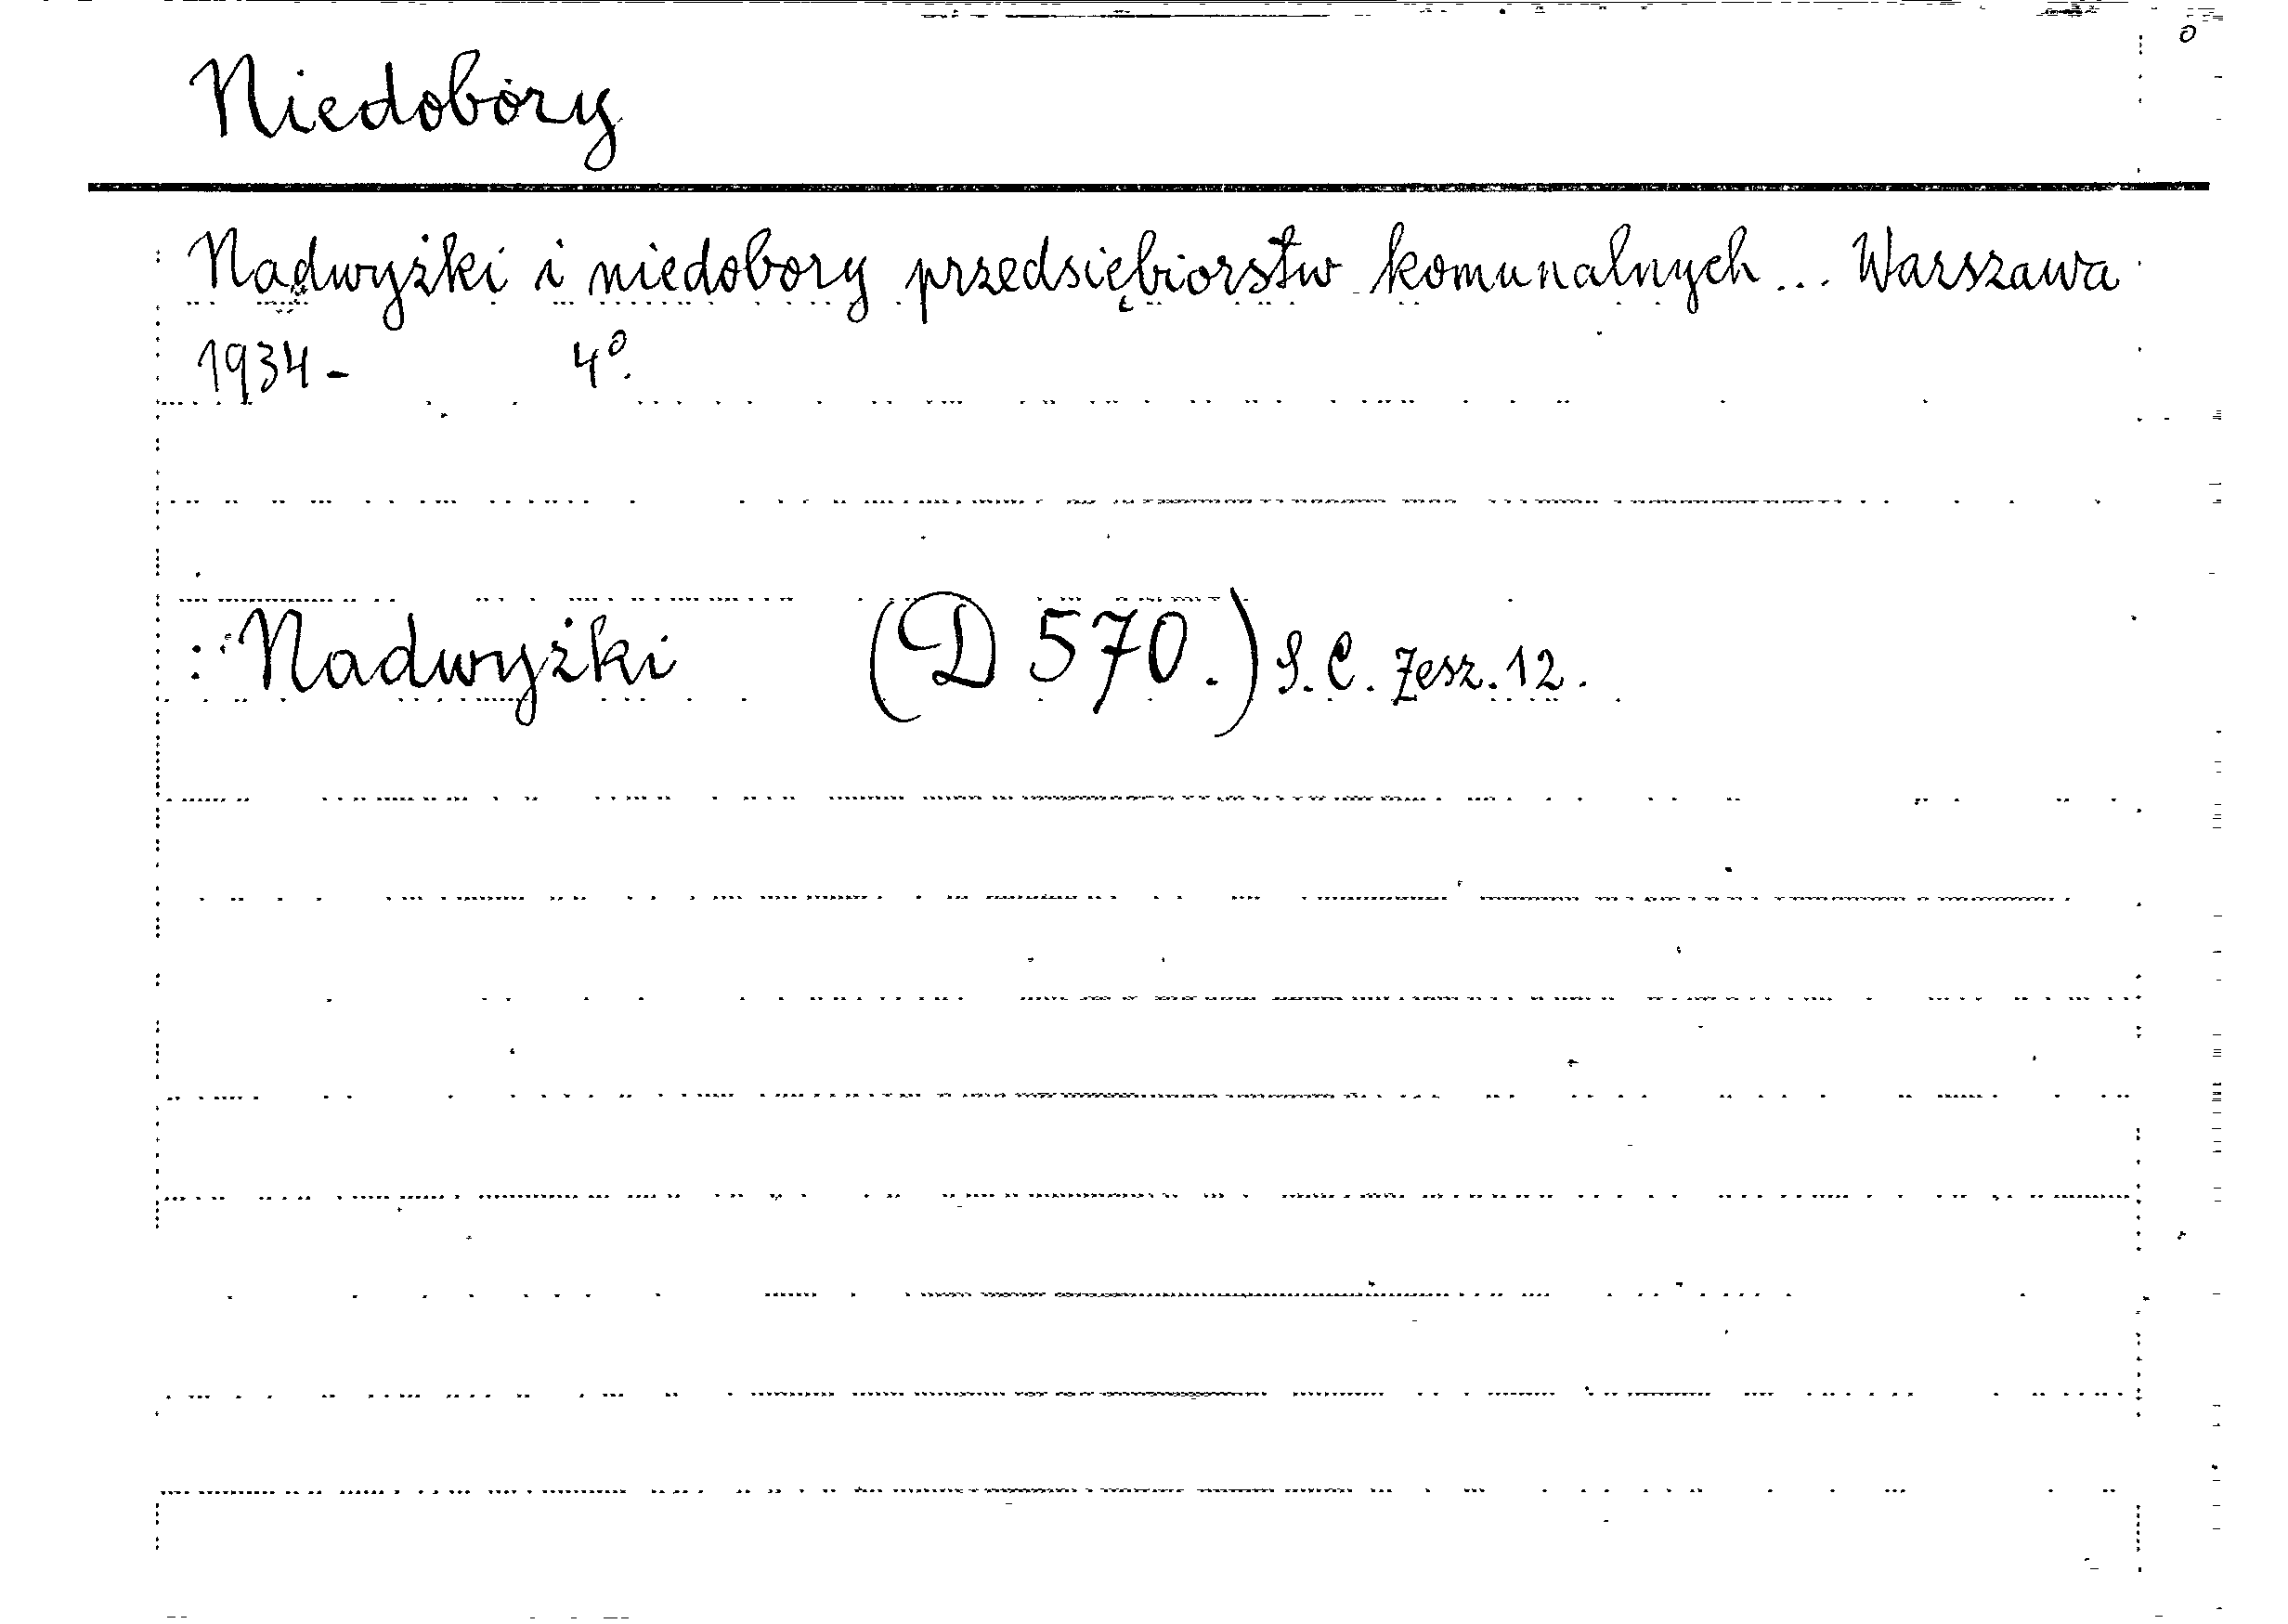 Niedobory
Nadwyżki i niedobory przedsiębiorstw komunalnych... Warszawa
1934- 4º.
: Nadwyżki (D 570.) S.C. Zesz. 12.